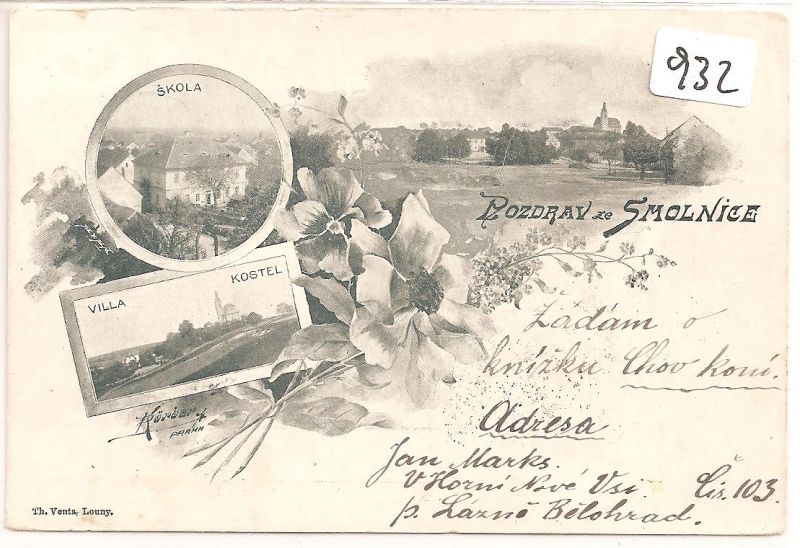 932
ŠKOLA
POZDRAV ze SMOLNICE
VILLA
KOSTEL
Žádám o
knížku Chov koní.
Adresa
Jan Marks.
V Horní Nové Vsi Čís. 103
p. Lázně Bělohrad.
PRAHA
Th. Venta, Louny.